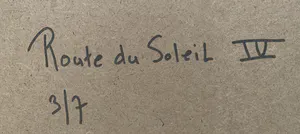 Route du Soleil IV
3/7